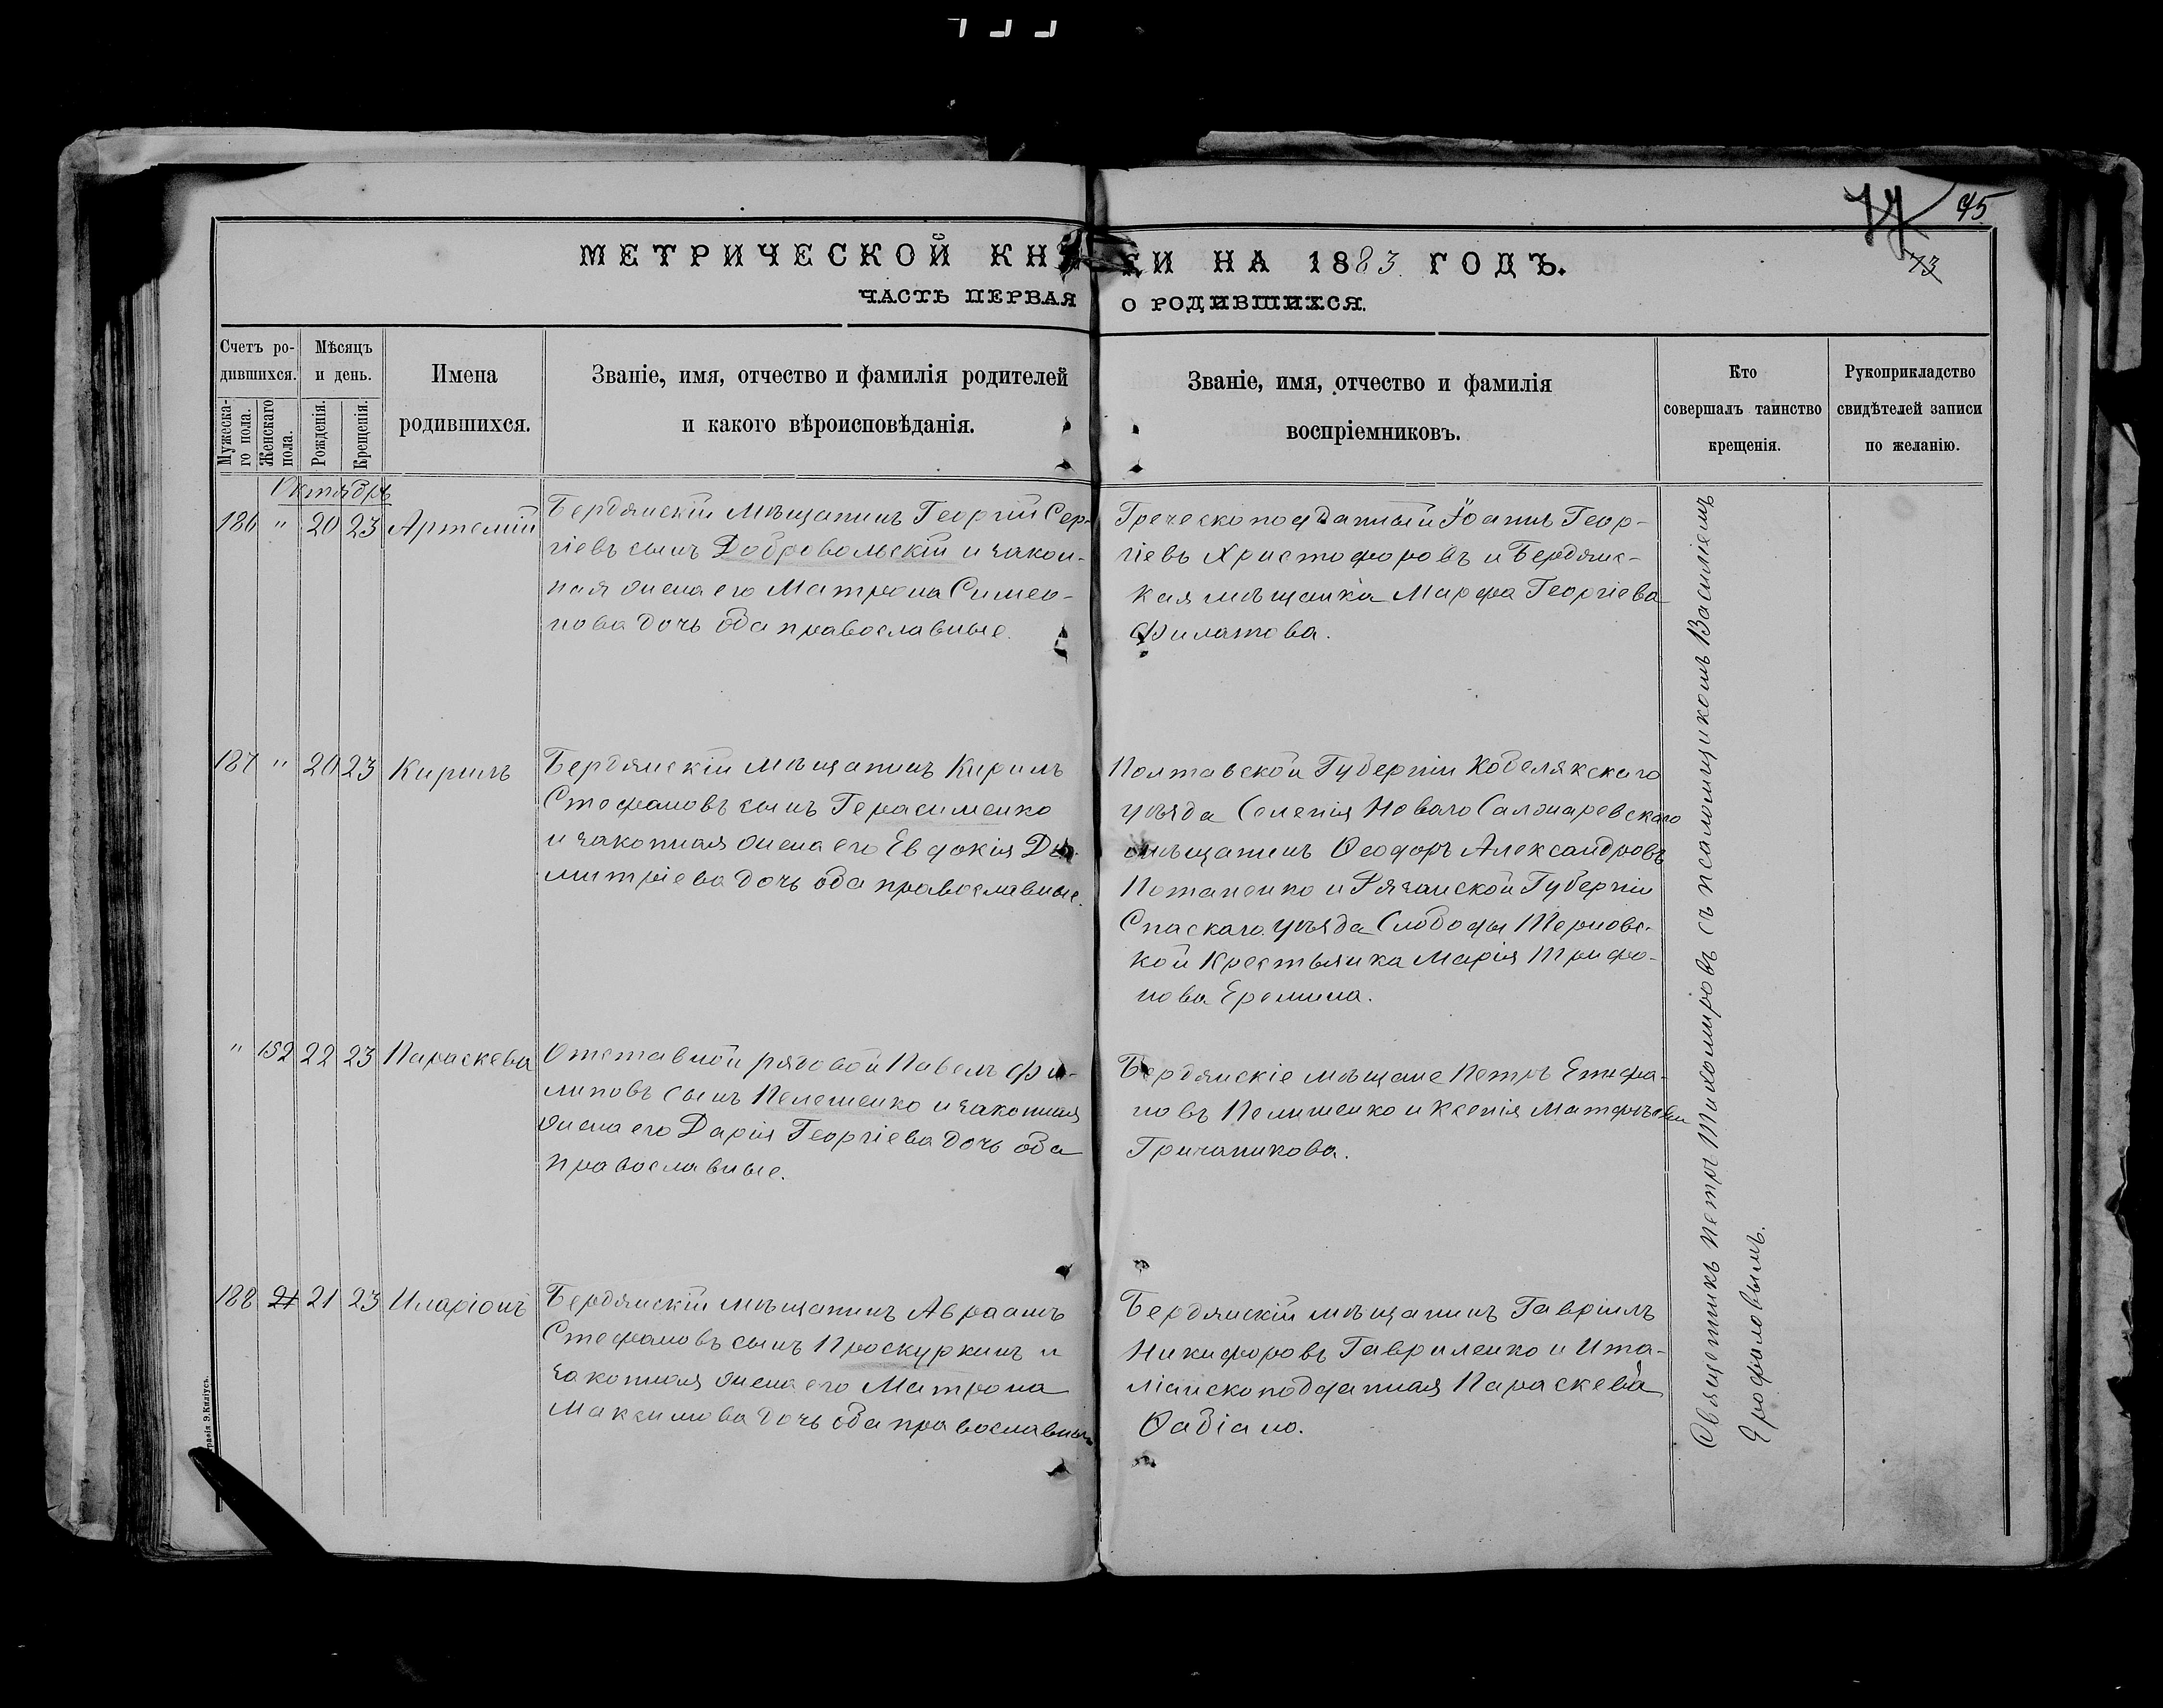 75
73
МЕТРИЧЕСКОЙ КНИГИ НА 1883 ГОДЪ.
ЧАСТЬ ПЕРВАЯ О РОДИВШИХСЯ.
Счетъ ро-
дившихся.
Мужеска-
го пола.
Женскаго
пола.
Мѣсяцъ
и день.
Рожденія.
Крещенія.
Имена
родившихся.
Званіе, имя, отчество и фамилія родителей
и какого вѣроисповѣданія.
Званіе, имя, отчество и фамилія
воспріемниковъ.
Кто
совершалъ таинство
крещенія.
Рукоприкладство
свидѣтелей записи
по желанію.
Октябрь
186 " 20 23 Артемій
Бердянскій Мѣщанинъ Георгій Сер-
гіевъ сынъ Добровольскій и закон-
ная жена его Матрона Симео-
нова дочь оба православные.
Греческоподданный Іоаннъ Геор-
гіевъ Христофоровъ и Бердянс-
кая мѣщанка Марфа Георгіева
Филатова.
187 " 20 23 Кирилъ
Бердянскій Мѣщанинъ Кирилъ
Стефановъ сынъ Герасименко
и законная жена его Евдокія Ди-
митріева дочь оба православные.
Полтавской Губерніи Кобелякскаго
уѣзда Селенія Новаго Санжаревскаго
мѣщанинъ Ѳеодоръ Александровъ
Потапенко и Рязанской Губерніи
Спаскаго уѣзда Слободы Терновс-
кой Крестьянка Марія Трифо-
нова Еремина.
" 152 22 23 Параскева
Отставной рядовой Павелъ Фи-
липовъ сынъ Пелешенко и законная
жена его Дарія Георгіева дочь оба
православные.
Бердянскіе мѣщане Петръ Епифа-
новъ Пелишенко и Ксенія Матфѣева
Гричаникова.
188 21 21 23 Иларіонъ
Бердянскій мѣщанинъ Авраамъ
Стефановъ сынъ Проскуркинъ и
законная жена его Матрона
Максимова дочь оба православные
Бердянскій мѣщанинъ Гавріилъ
Никифоровъ Гавриленко и Ита-
ліанскоподданная Параскева
Ѳабіано.
Священникъ Петръ Тихомировъ съ псаломщикомъ Василіемъ
Ерофаловымъ.